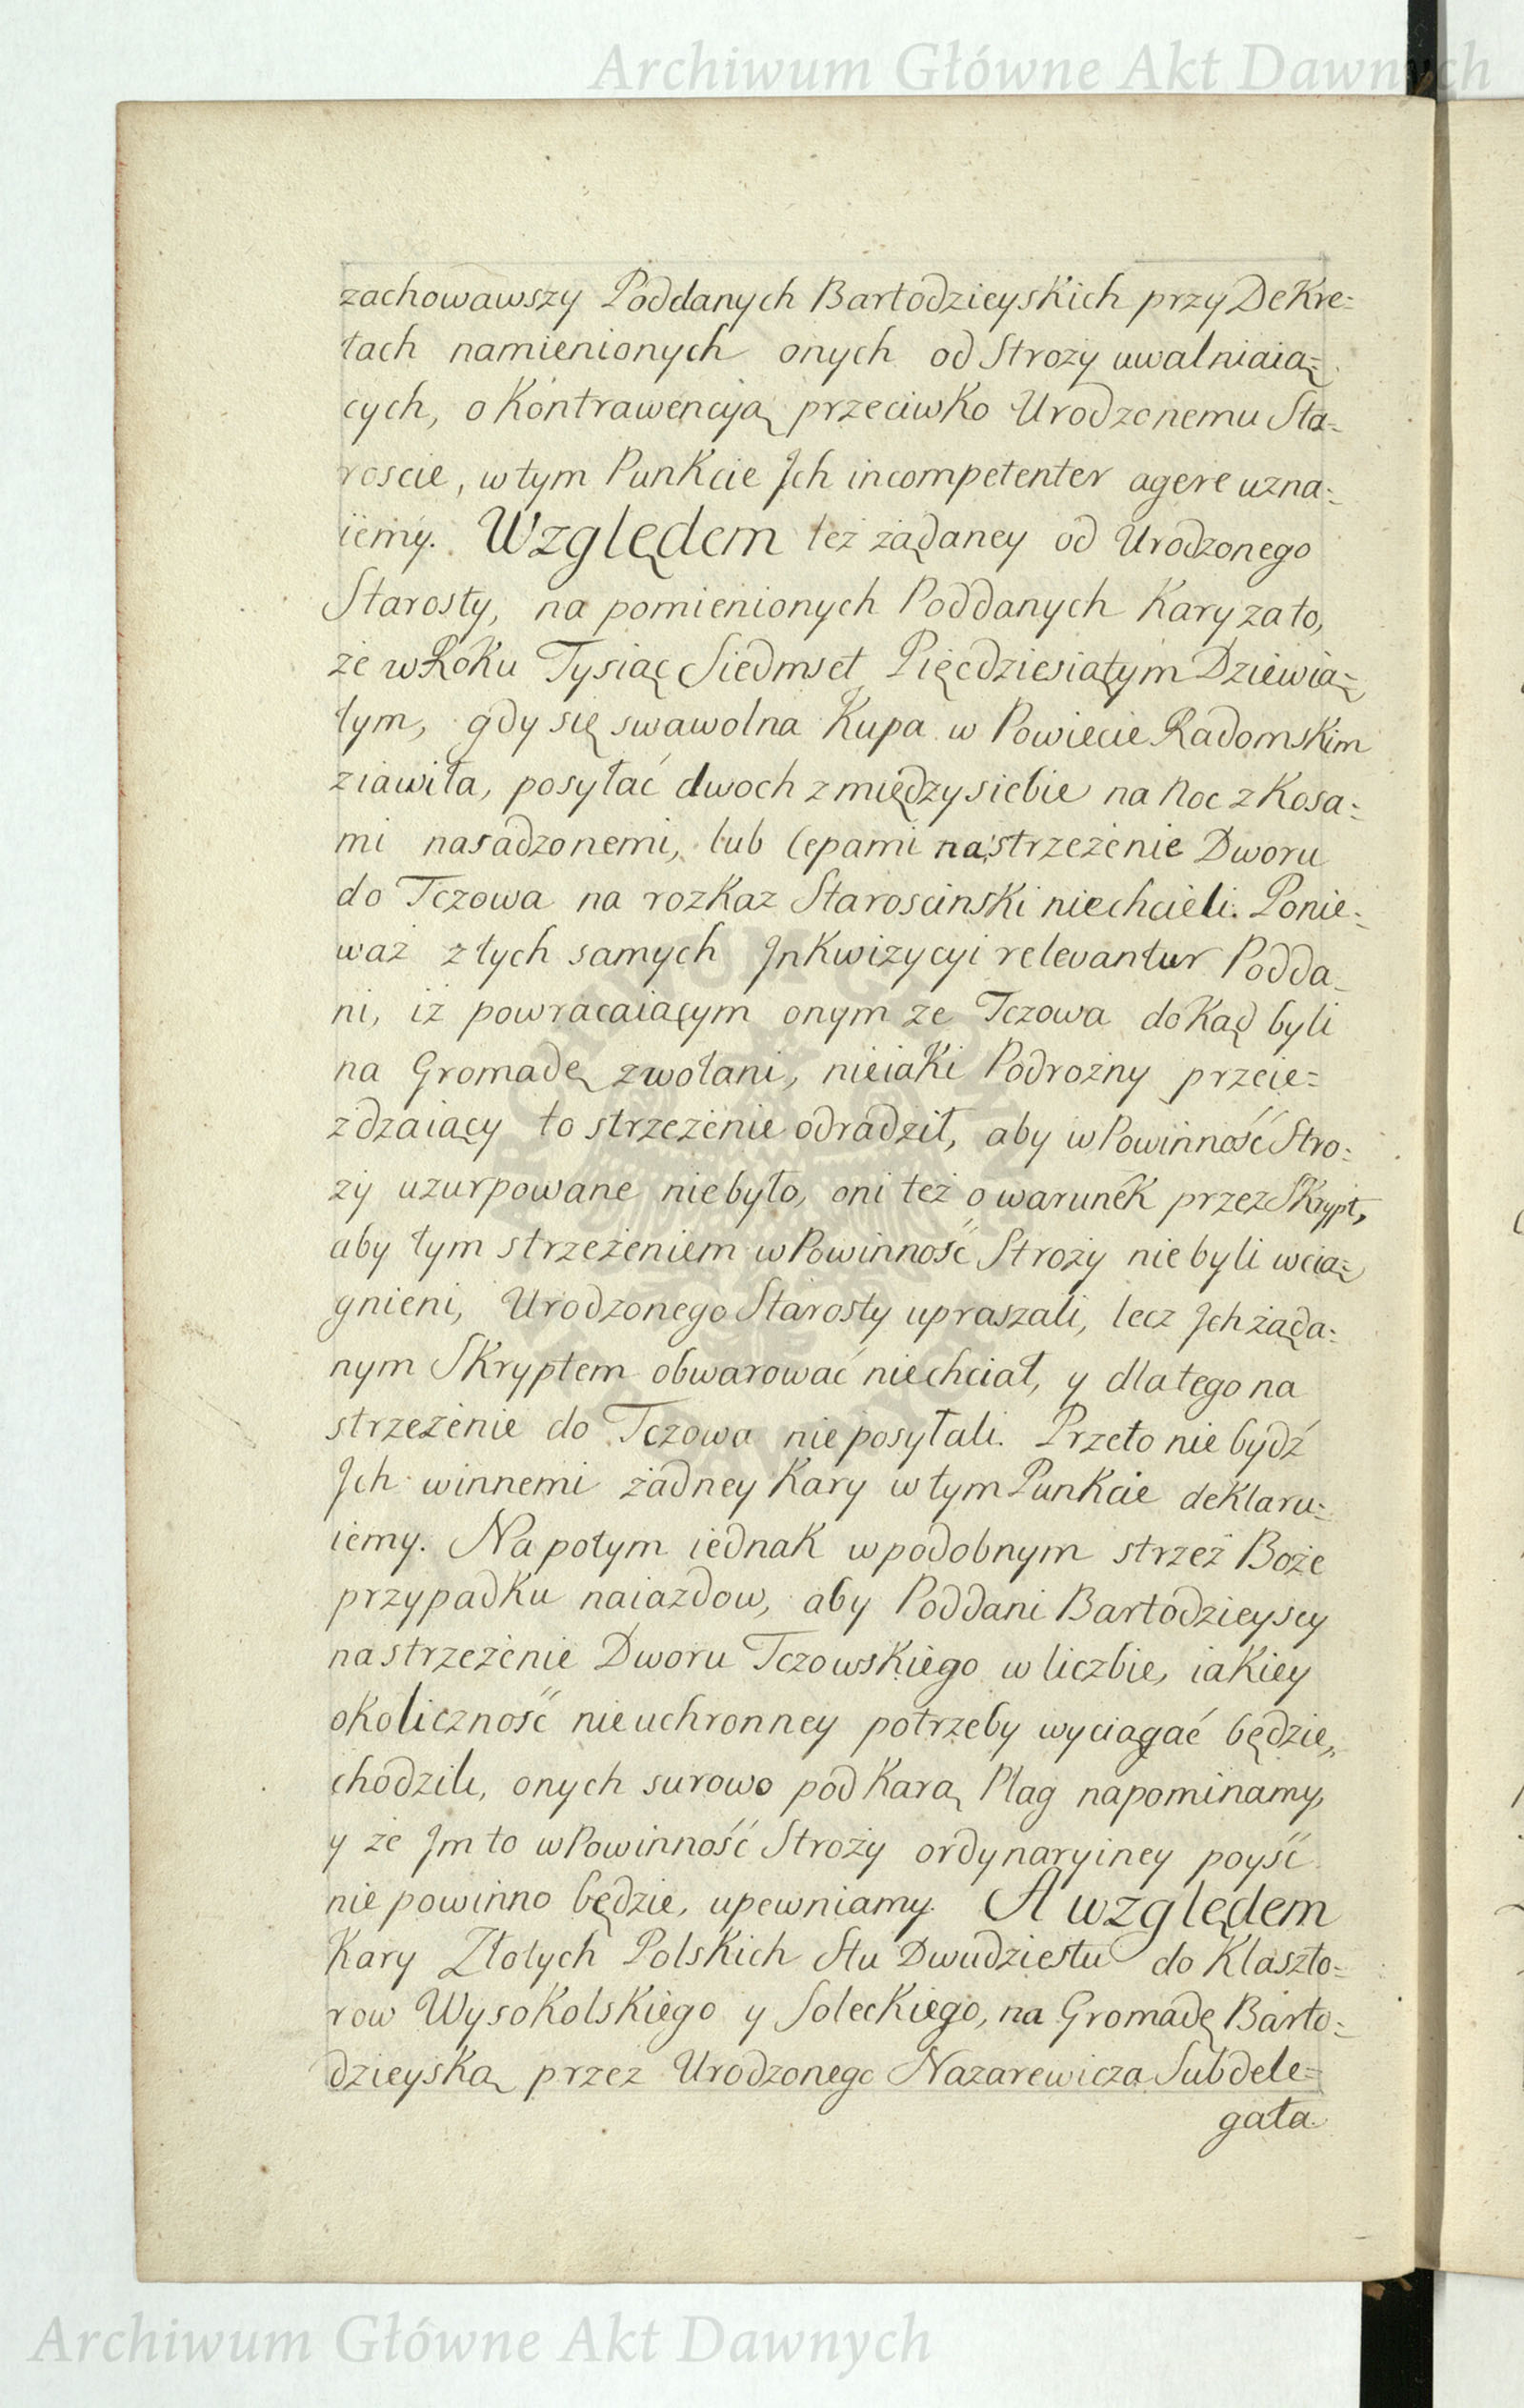 Archiwum Główne Akt Dawnych
zachowawszy Poddanych Bartodzieyskich przy Dekre=
tach namienionych onych od Stroży uwalniaią=
cych, o Kontrawencyią przeciwko Urodzonemu Sta=
roscie, w tym Punkcie Jch incompetenter agere uzna=
iemy. Względem też żądaney od Urodzonego
Starosty, na pomienionych Poddanych Kary za to,
że w Roku Tysiąc Siedmset Pięćdziesiątym Dziewią=
tym, gdy się swawolna Kupa w Powiecie Radomskim
ziawiła, posyłać dwoch z między siebie na Noc z Kosa=
mi nasadzonemi, lub Cepami na strzeżenie Dworu
do Tczowa na rozkaz Staroscinski niechcieli. Ponie=
waż z tych samych Jnkwizycyi relevantur Podda=
ni, iż powracaiącym onym ze Tczowa dokąd byli
na Gromadę zwołani, nieiaki Podrożny przeie=
zdzaiący to strzeżenie odradził, aby w Powinność Stro=
ży uzurpowane niebyło, oni też o warunek przez Skrypt,
aby tym strzeżeniem w Powinność Stroży nie byli wcią=
gnieni, Urodzonego Starosty upraszali, lecz Jch żąda=
nym Skryptem obwarować niechciał, y dla tego na
strzeżenie do Tczowa nie posyłali. Przeto nie bydź
Jch winnemi żadney Kary w tym Punkcie deklaru=
iemy. Na potym iednak w podobnym strzeż Boże
przypadku naiazdow, aby Poddani Bartodzieyscy
na strzeżenie Dworu Tczowskiego w liczbie, iakiey
okoliczność nieuchronney potrzeby wyciągać będzie,
chodzili, onych surowo pod Karą Plag napominamy,
y że Jm to w Powinność Stroży ordynaryiney poyść
nie powinno będzie, upewniamy. A względem
Kary Złotych Polskich Stu Dwudziestu do Klaszto=
row Wysokolskiego y Soleckiego, na Gromadę Barto=
dzieyską przez Urodzonego Nazarewicza Subdele=
gata
Archiwum Główne Akt Dawnych